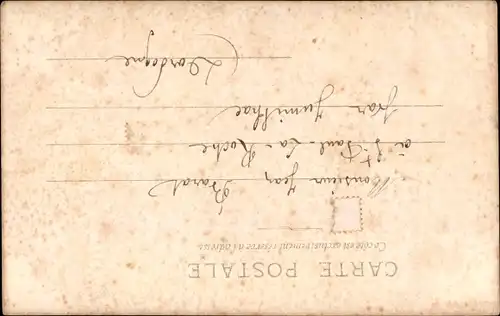 CARTE POSTALE
Ce côté est exclusivement réservé à l'adresse
Monsieur Jean Barat
à St Paul-La-Roche
par Jumilhac
(Dordogne